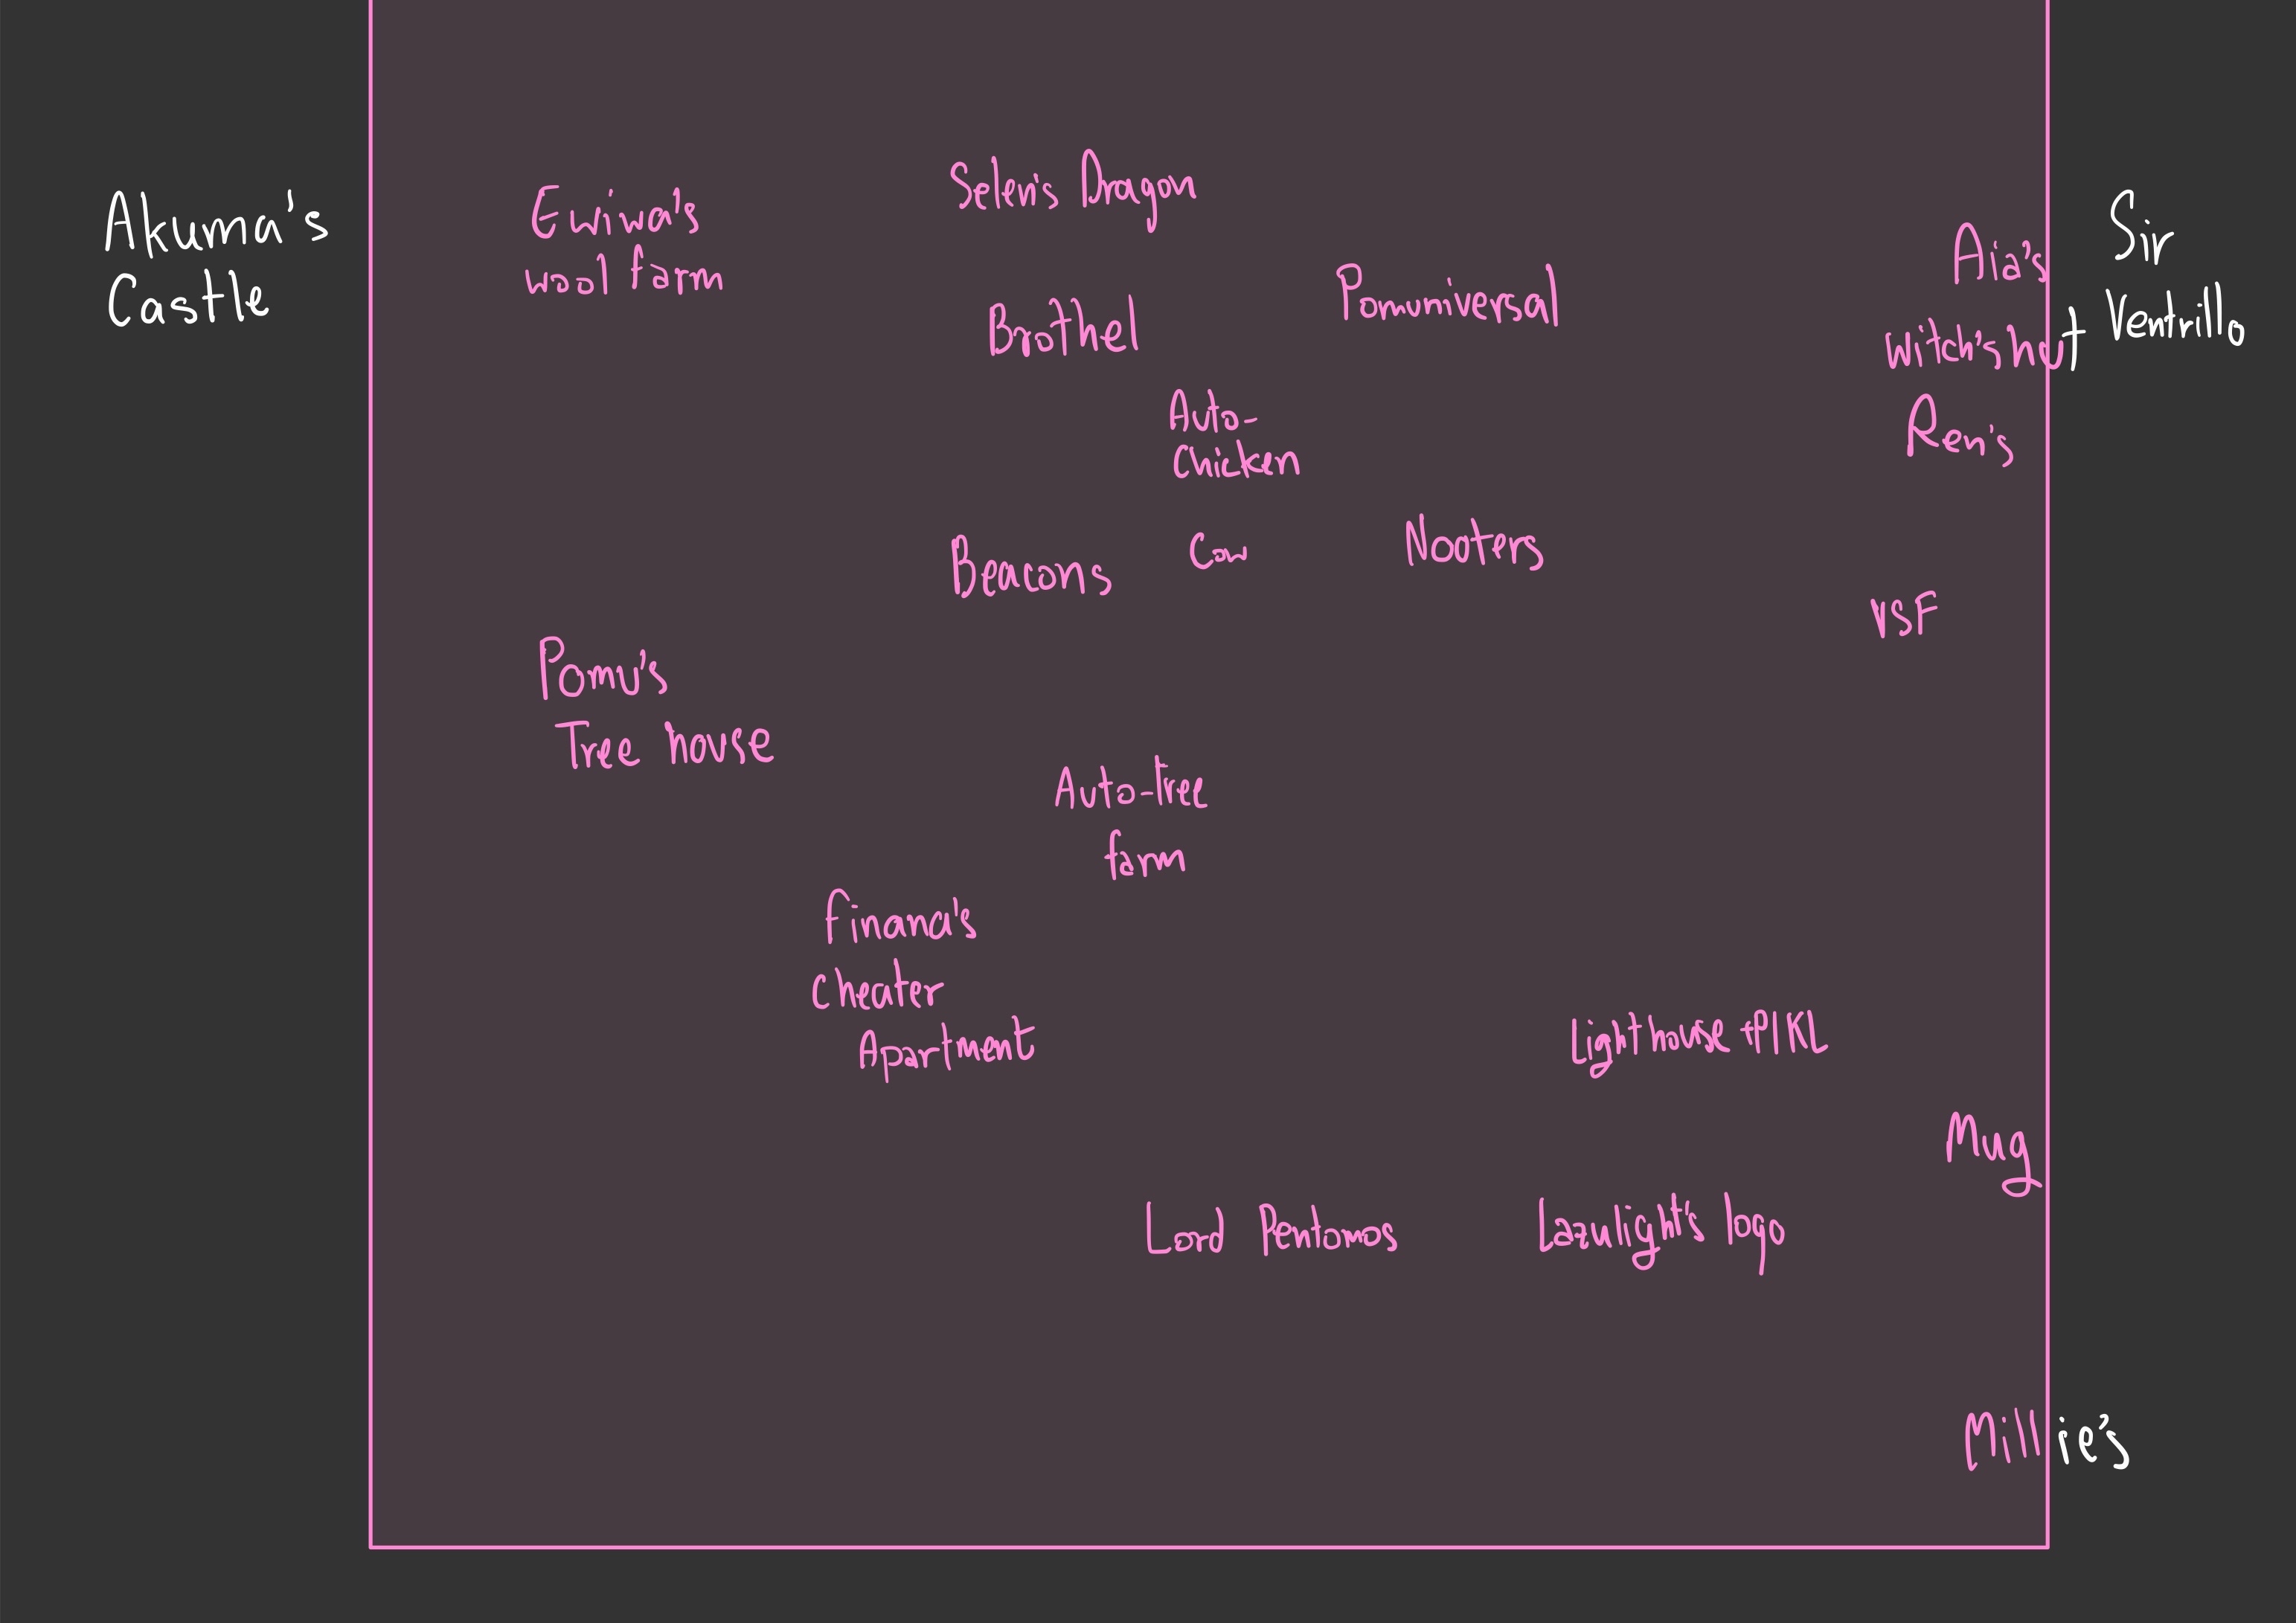 Akuma's
Castle
Enina's
wool farm
Selen's Dragon
Brothel
Pomuniversal
Aia's
witch's hut
Sir
Ventrillo
Ren's
Auto-
chicken
Beacons
Cow
Nooters
VSF
Pomu's
Tree house
Auto-tree
farm
Finana's
Cheater
Apartment
Lighthouse + PIKL
Mug
Lord Pentomos
Lazulight's logo
Millie's